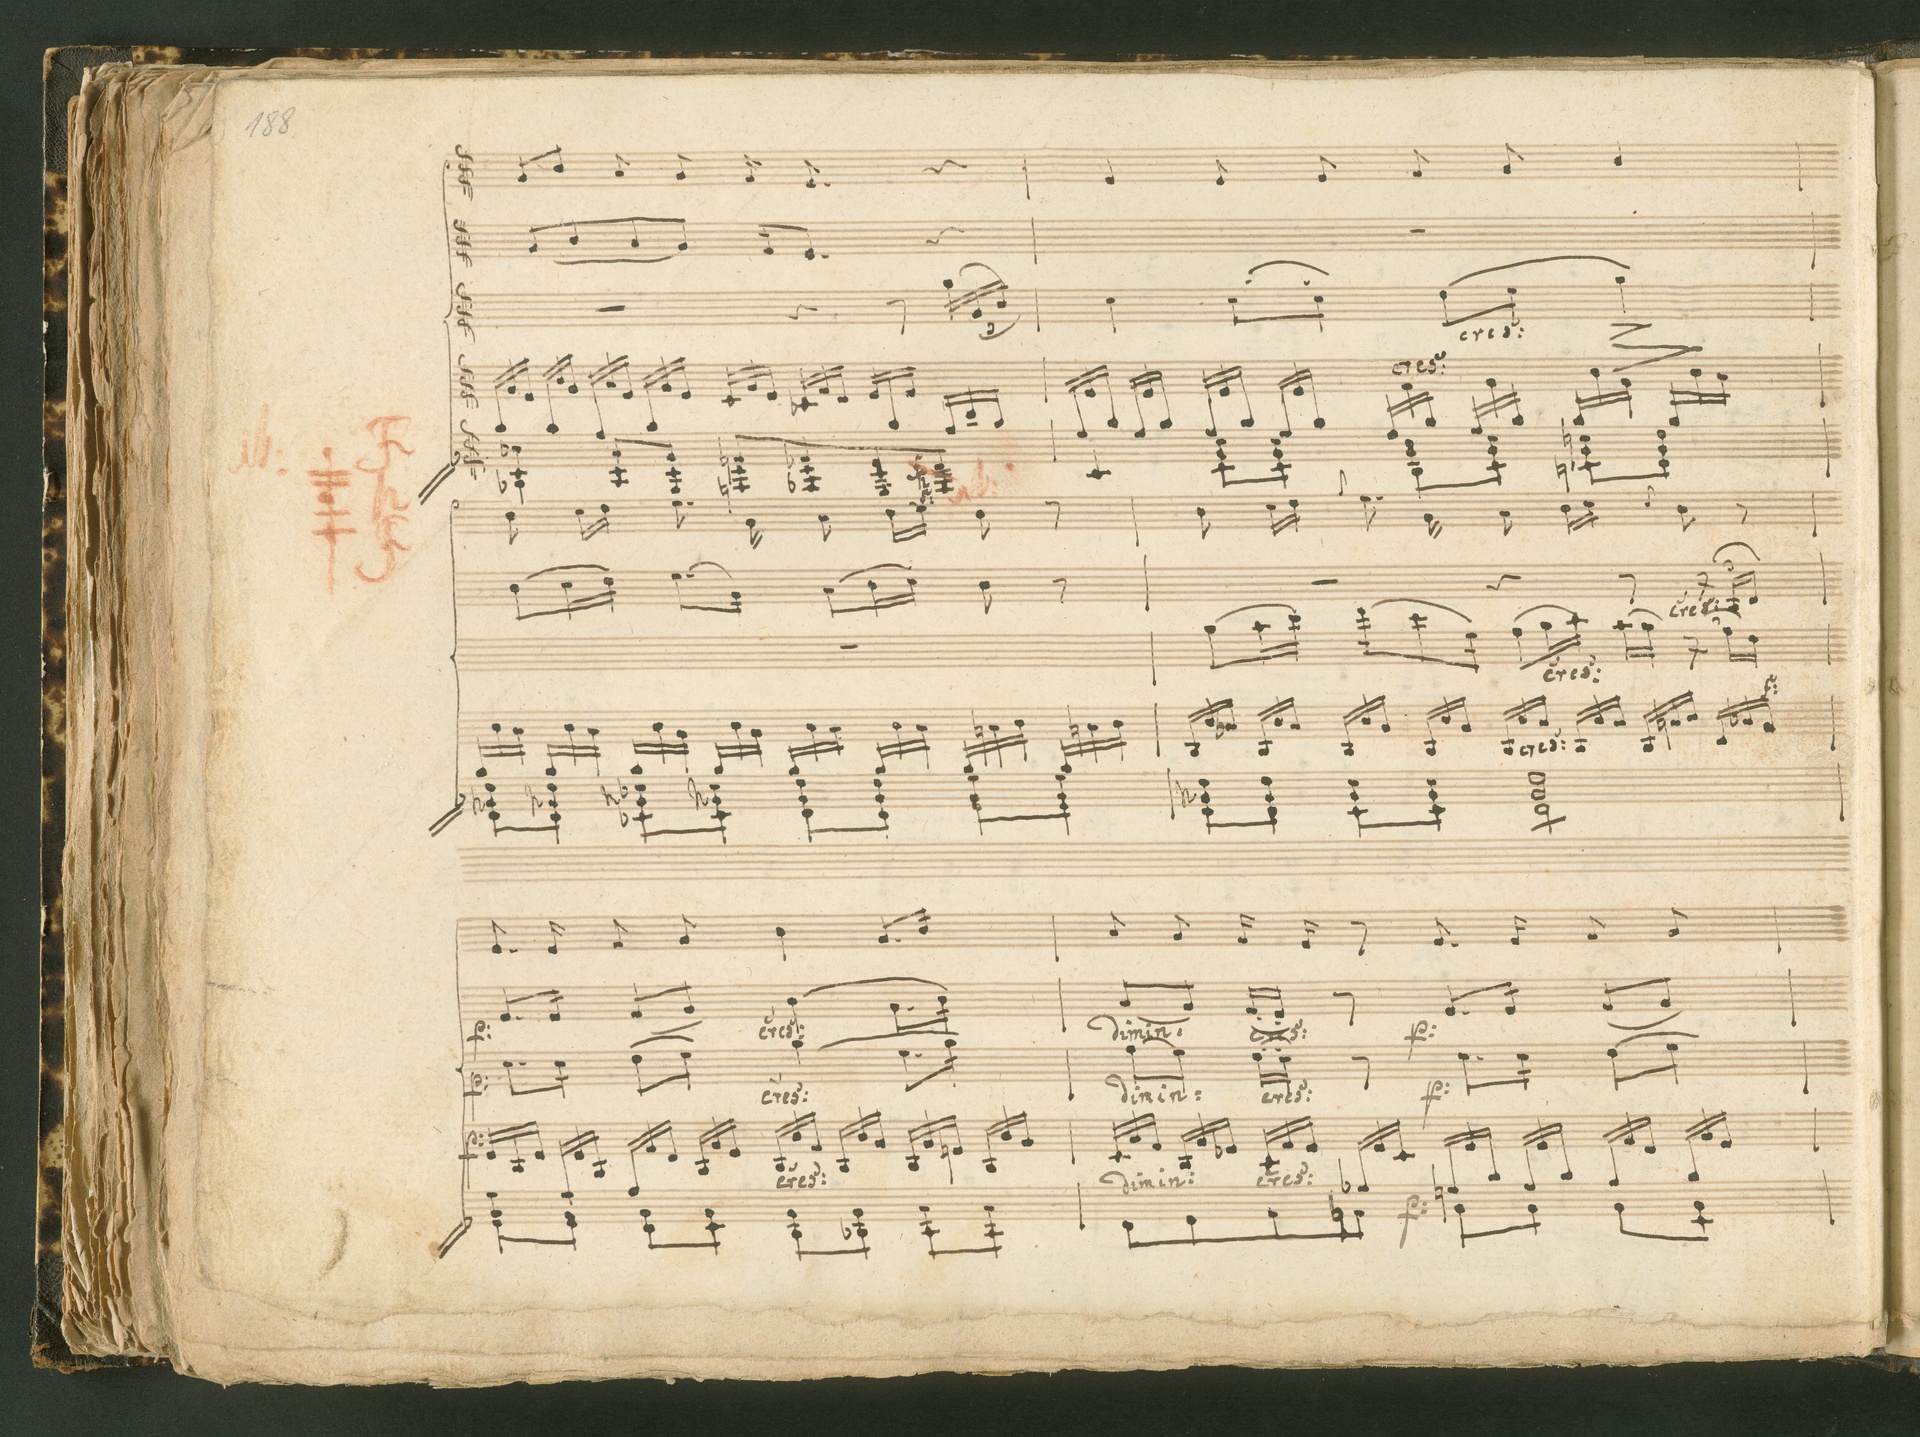 188
cres:
cres:
cres:
cres:
cres:
p: cres: dimin: p:
p: cres: dimin: cres: p:
p: cres: dimin: cres: p: